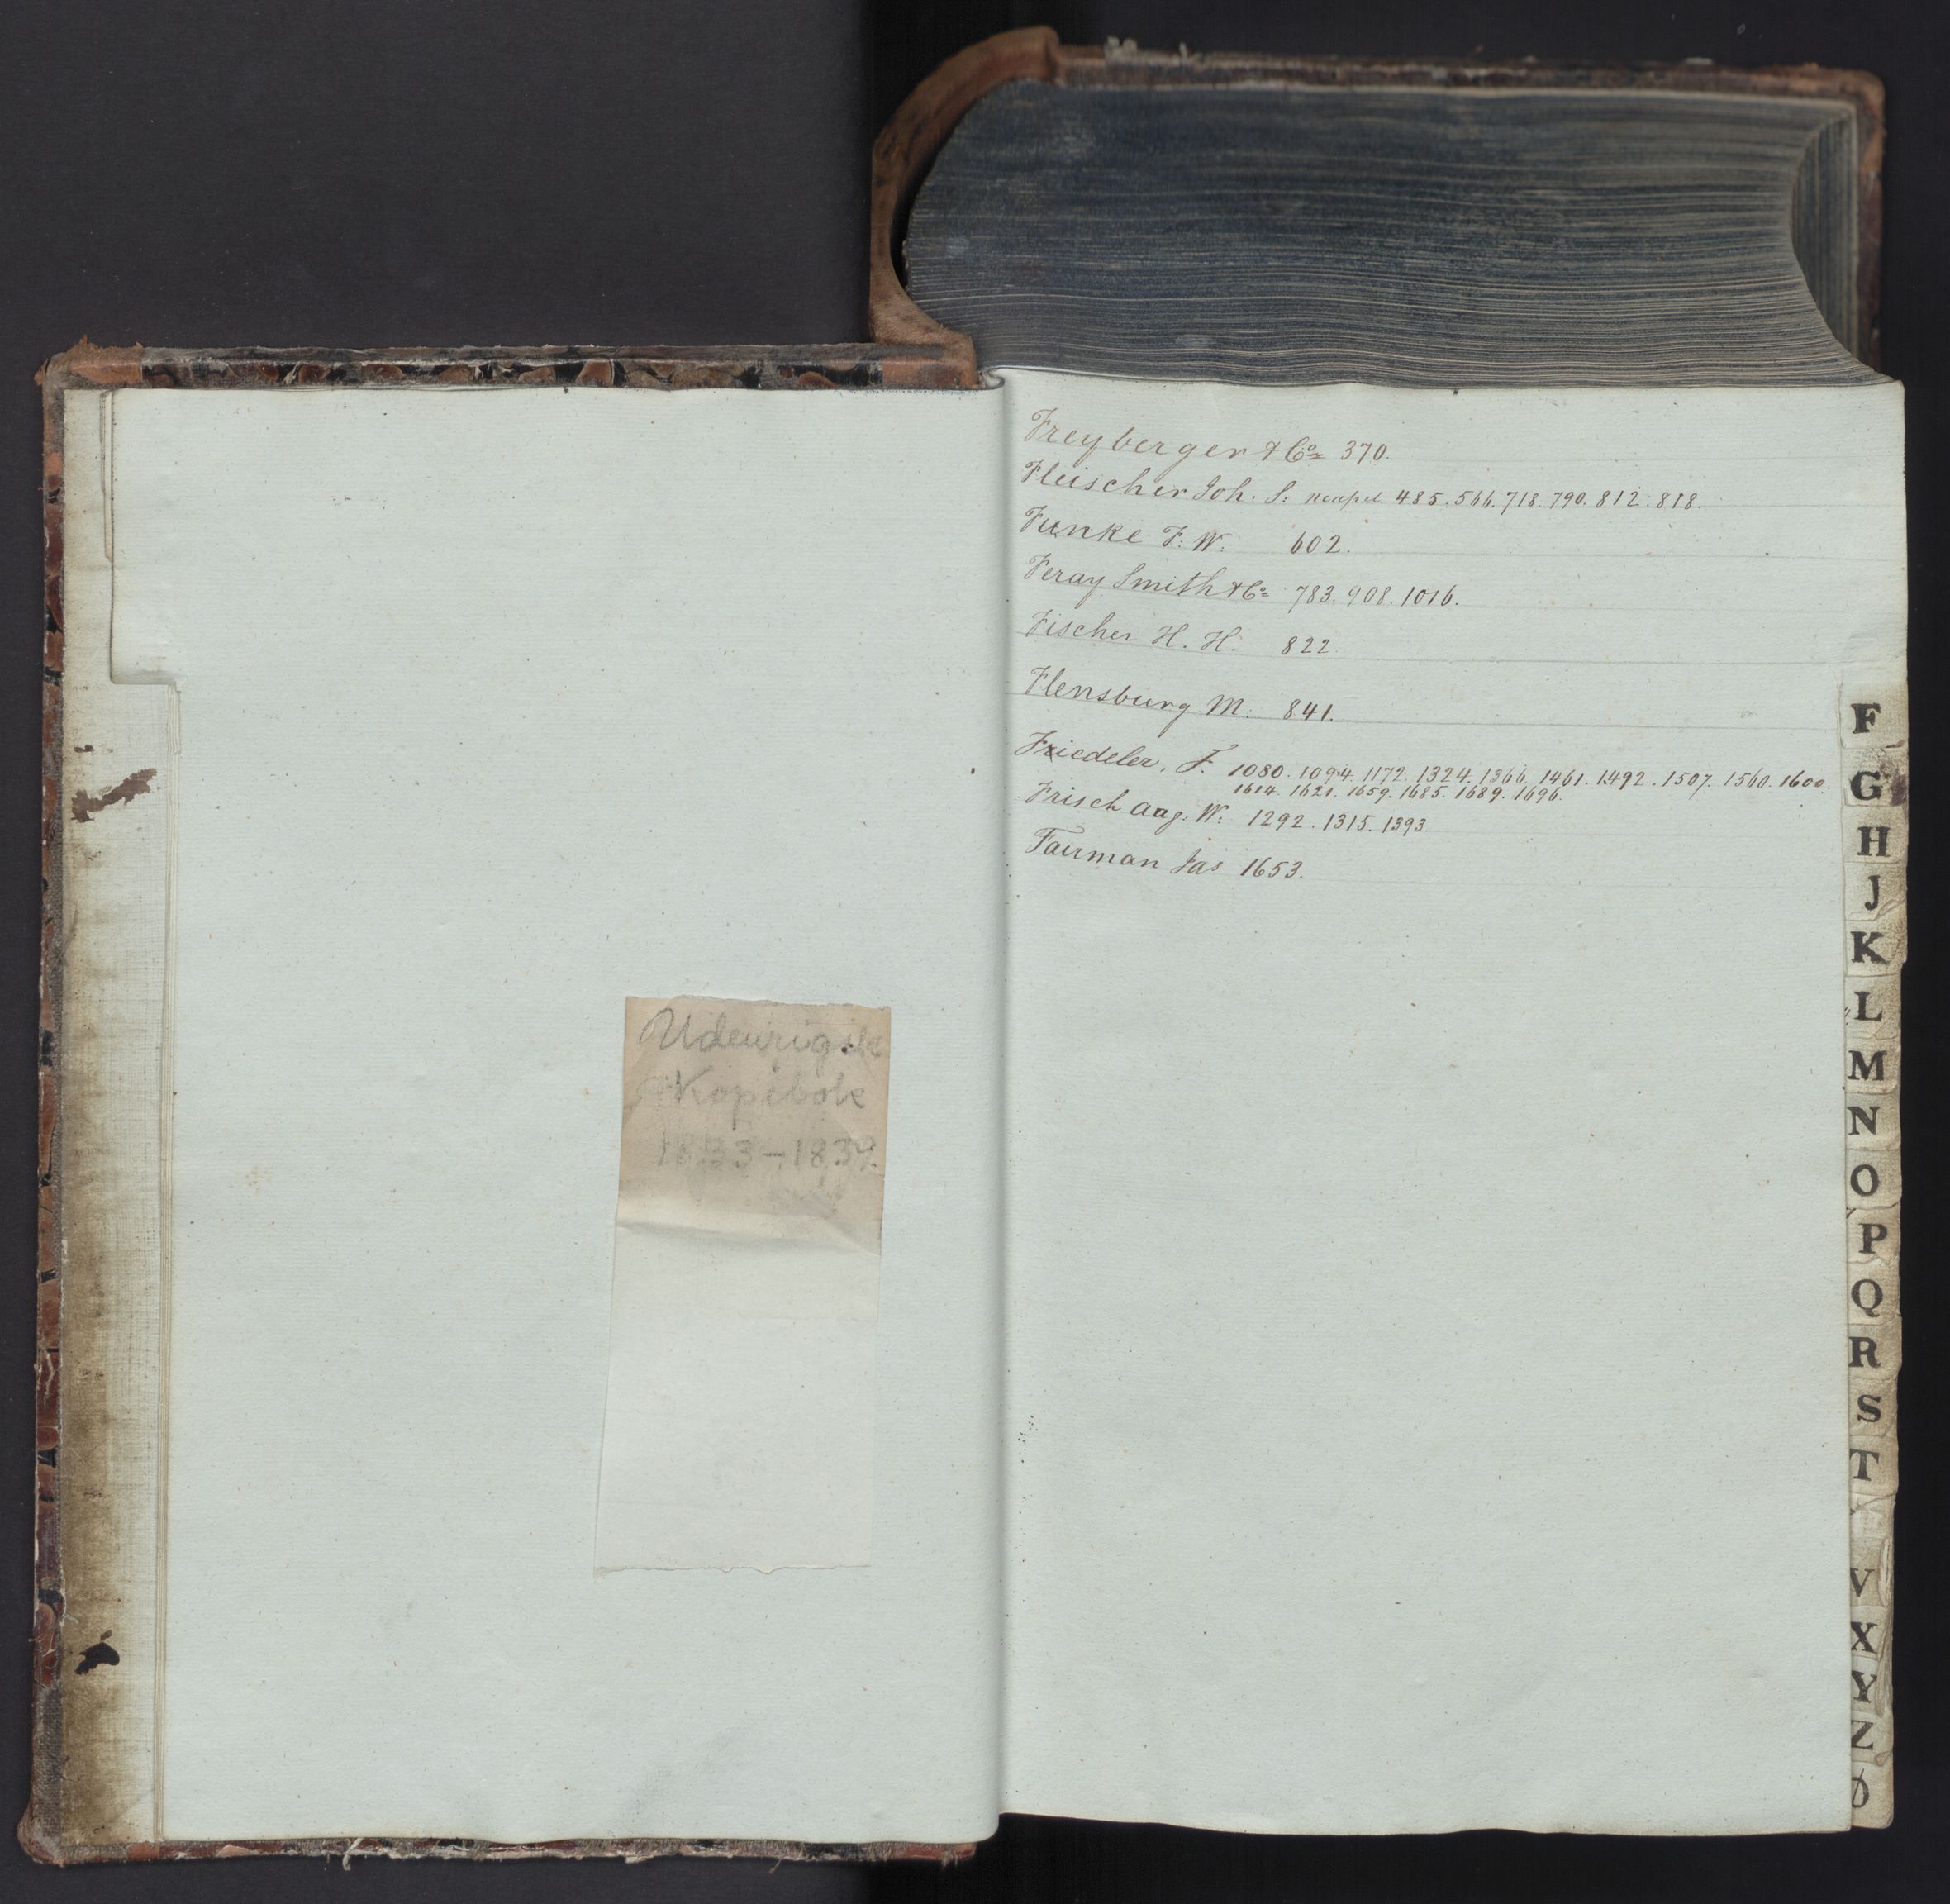 Udenrigsk
Kopibok
1833-1839.
Freyberger & Co 370.
Fleischer Joh. S: Neapel 485. 566. 718. 790. 812. 818.
Funke F: W: 602.
Feray Smith & Co 783. 908. 1016.
Fischer H. H. 822
Flensburg M: 841.
Friedeler, F. 1080. 1094. 1172. 1324. 1366. 1461. 1492. 1507. 1560. 1600.
1614. 1621. 1659. 1685. 1689. 1696.
Frisch Aug. W: 1292. 1315. 1393
Fairman Jas 1653.
F
G
H
J
K
L
M
N
O
P
Q
R
S
T
V
X
Y
Z
Ø